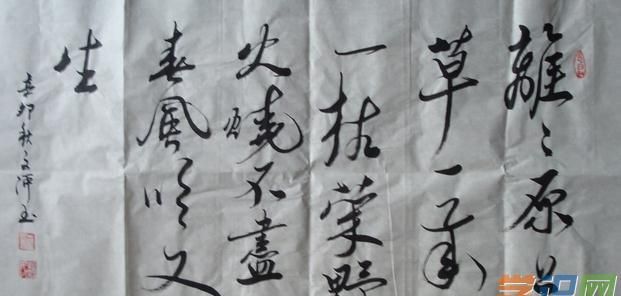 離〻原上
草一歲
一枯榮野
火燒不盡
春風吹又
生
辛卯秋文
学识网